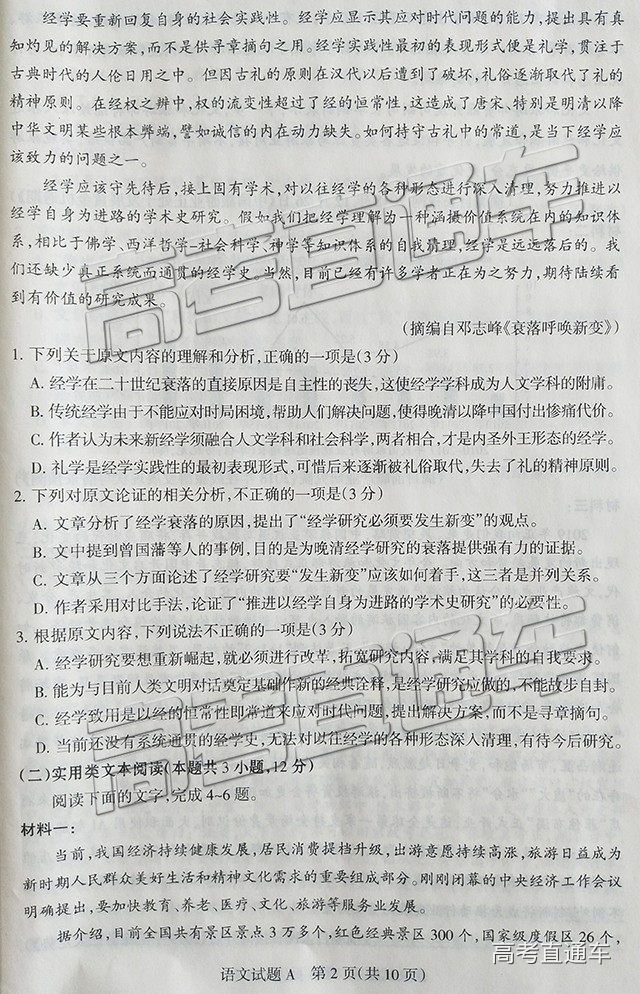 经学要重新回复自身的社会实践性。经学应显示其应对时代问题的能力，提出具有真
知灼见的解决方案，而不是供寻章摘句之用。经学实践性最初的表现形式便是礼学，贯注于
古典时代的人伦日用之中。但因古礼的原则在汉代以后遭到了破坏，礼俗逐渐取代了礼的
精神原则。在经权之辨中，权的流变性超过了经的恒常性，这造成了唐宋、特别是明清以降
中华文明某些根本弊端，譬如诚信的内在动力缺失。如何持守古礼中的常道，是当下经学应
该致力的问题之一。
经学应该守先待后，接上固有学术，对以往经学的各种形态进行深入清理，努力推进以
经学自身为进路的学术史研究。假如我们把经学理解为一种涵摄价值系统在内的知识体
系，相比于佛学、西洋哲学-社会科学、神学等知识体系的自我清理，经学是远远落后的。我
们还缺少真正系统而通贯的经学史。当然，目前已经有许多学者正在为之努力，期待陆续看
到有价值的研究成果。
(摘编自邓志峰《衰落呼唤新变》)
1. 下列关于原文内容的理解和分析，正确的一项是(3分)
A. 经学在二十世纪衰落的直接原因是自主性的丧失，这使经学学科成为人文学科的附庸。
B. 传统经学由于不能应对时局困境，帮助人们解决问题，使得晚清以降中国付出惨痛代价。
C. 作者认为未来新经学须融合人文学科和社会科学，两者相合，才是内圣外王形态的经学。
D. 礼学是经学实践性的最初表现形式，可惜后来逐渐被礼俗取代，失去了礼的精神原则。
2. 下列对原文论证的相关分析，不正确的一项是(3分)
A. 文章分析了经学衰落的原因，提出了“经学研究必须要发生新变”的观点。
B. 文中提到曾国藩等人的事例，目的是为晚清经学研究的衰落提供强有力的证据。
C. 文章从三个方面论述了经学研究要“发生新变”应该如何着手，这三者是并列关系。
D. 作者采用对比手法，论证了“推进以经学自身为进路的学术史研究”的必要性。
3. 根据原文内容，下列说法不正确的一项是(3分)
A. 经学研究要想重新崛起，就必须进行改革，拓宽研究内容，满足其学科的自我要求。
B. 能为与目前人类文明对话奠定基础作新的经典诠释，是经学研究应做的，不能故步自封。
C. 经学致用是以经的恒常性即常道来应对时代问题，提出解决方案，而不是寻章摘句。
D. 当前还没有系统通贯的经学史，无法对以往经学的各种形态深入清理，有待今后研究。
(二)实用类文本阅读(本题共3小题，12分)
阅读下面的文字，完成4~6题。
材料一：
当前，我国经济持续健康发展，居民消费提档升级，出游意愿持续高涨，旅游日益成为
新时期人民群众美好生活和精神文化需求的重要组成部分。刚刚闭幕的中央经济工作会议
明确提出，要加快教育、养老、医疗、文化、旅游等服务业发展。
据介绍，目前全国共有景区景点3万多个，红色经典景区300个，国家级度假区26个，
语文试题A 第2页(共10页)
高考直通车
高考直通车
高考直通车